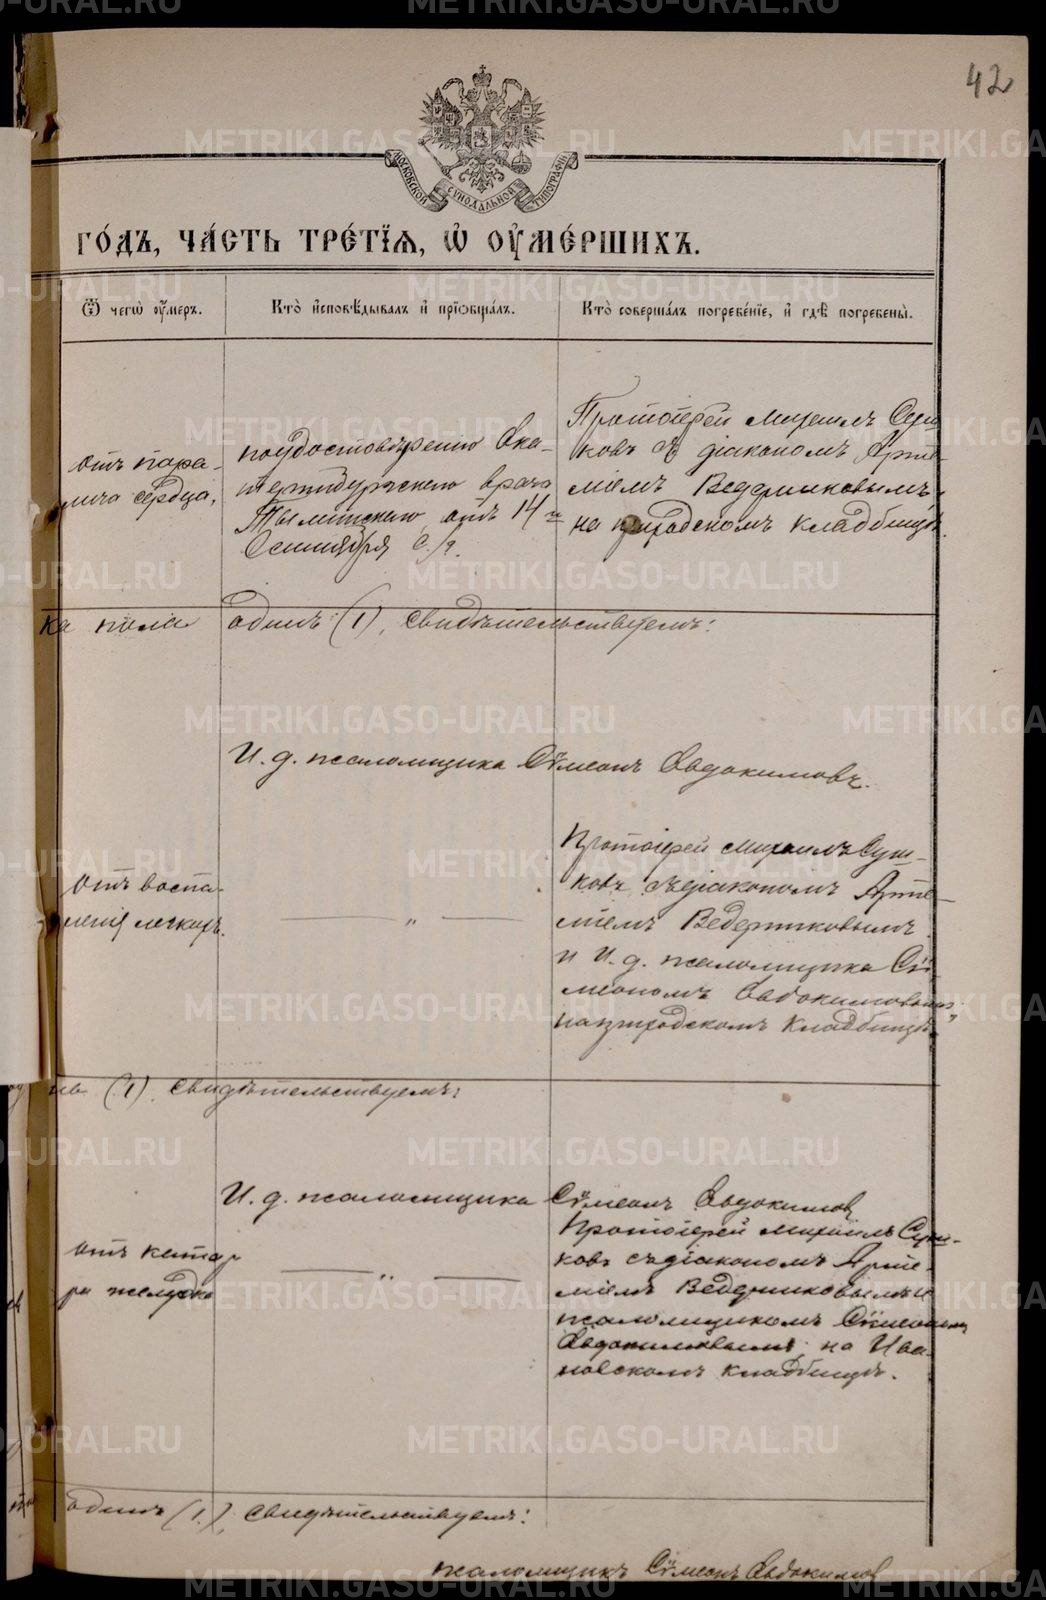 42
МОСКОВСКОЙ СУНОДАЛЬНОЙ ТИПОГРАФІИ
ГО́ДЪ, ЧА́СТЬ ТРЕ́ТІЯ, Ѡ҆ ОУ҆МЕ́РШИХЪ.
Ѿ чегѡ̀ оу҆́меръ.
Кто̀ и҆сповѣ́дывалъ и҆ прїѡбща́лъ.
Кто̀ соверша́лъ погребе́нїе, и҆ гдѣ̀ погребены̀.
отъ пара-
лича сердца,
по удостовѣренію Ека-
теринбургскаго врача
отъ 14 го
Сентября с./г.
Протоіерей Михаилъ Суш
ковъ съ діакономъ Арте-
міемъ Ведерниковымъ,
на городскомъ кладбищѣ.
ка пола одинъ (1), свидѣтельствуемъ:
И. д. псаломщика Сѷмеонъ Евдокимовъ.
отъ воспа-
ленія легкихъ.
— „ —
Протоіерей Михаилъ Суш-
ковъ съ діакономъ Арте-
міемъ Ведерниковымъ
и И. д. псаломщика Сѷ-
меономъ Евдокимовымъ,
на городскомъ кладбищѣ.
на (1), свидѣтельствуемъ:
И. д. псаломщика Сѷмеонъ Евдокимовъ
отъ катар
ра желудка
— „ —
Протоіерей Михаилъ Суш-
ковъ съ діакономъ Арте-
міемъ Ведерниковымъ и
псаломщикомъ Сѷмеономъ
Евдокимовымъ; на Ива-
новскомъ кладбищѣ.
одинъ (1.), свидѣтельствуемъ:
псаломщикъ Сѷмеонъ Евдокимов
METRIKI.GASO-URAL.RU